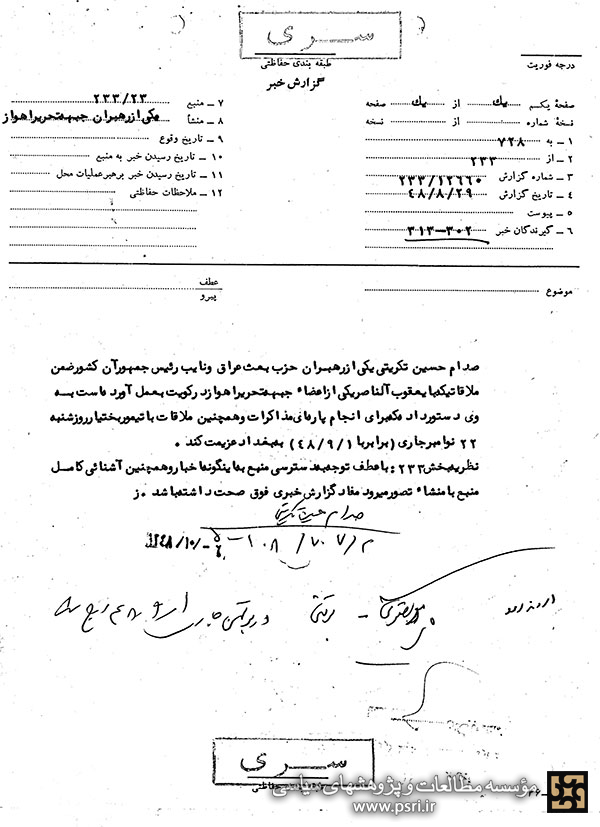 سری
طبقه بندی حفاظتی
گزارش خبر
درجه فوریت
صفحهٔ یکم یک از یک صفحه
نسخهٔ شماره از نسخه
۱ ــ به ۷۲۸
۲ ــ از ۲۳۳
۳ ــ شماره گزارش ۲۳۳/۱۲۶۶۰
۴ ــ تاریخ گزارش ۴۸/۸/۲۹
۵ ــ پیوست
۶ ــ گیرندگان خبر ۳۰۲-۳۱۳
۷ ــ منبع ۲۳۳/۲۳
۸ ــ منشأ یکی از رهبران جبهه تحریر اهواز
۹ ــ تاریخ وقوع
۱۰ ــ تاریخ رسیدن خبر به منبع
۱۱ ــ تاریخ رسیدن خبر برهبر عملیات محل
۱۲ ــ ملاحظات حفاظتی
موضوع
عطف
پیرو
صدام حسین تکریتی یکی از رهبران حزب بعث عراق و نایب رئیس جمهور آن کشور ضمن
ملاقاتیکه با یعقوب آلناصر یکی از اعضاء جبهه تحریر اهواز در کویت بعمل آورده است به
وی دستور داده که برای انجام پاره‌ای مذاکرات و همچنین ملاقات با تیمور بختیار روز شنبه
۲۲ نوامبر جاری (برابر با ۴۸/۹/۱) به بغداد عزیمت کند .
نظریه بخش ۲۳۳ : با عطف توجه به دسترسی منبع به اینگونه اخبار و همچنین آشنائی کامل
منبع با منشاء تصور میرود مفاد گزارش خبری فوق صحت داشته باشد . ز
صدام حسین تکریتی
سری
حفاظتی
مؤسسه مطالعات و پژوهشهای سیاسی
www.psri.ir